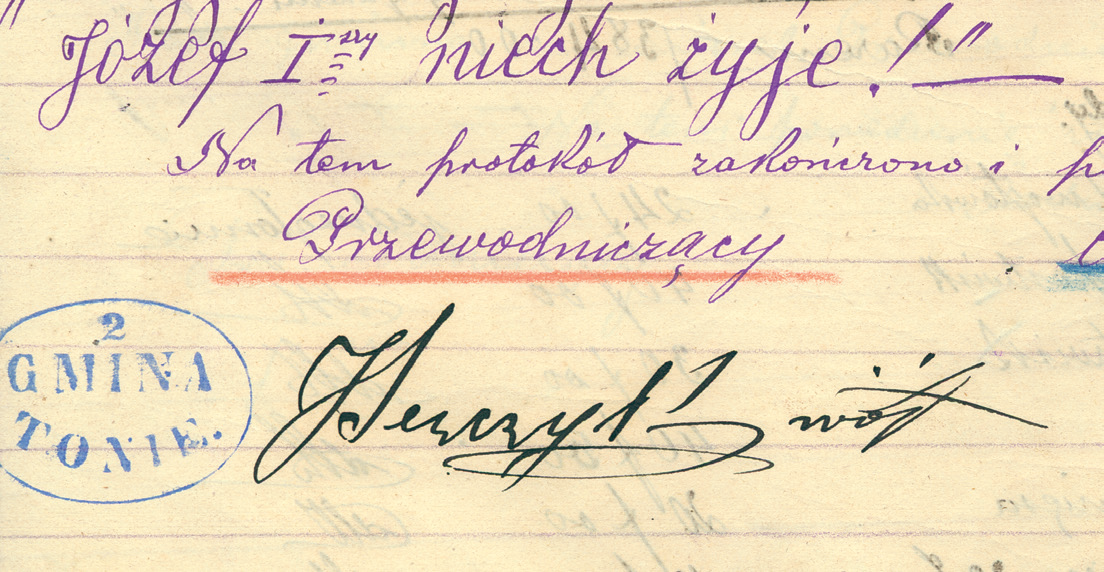 Józef I szy niech żyje!"
Na tem protokół zakończono i
Przewodniczący
2
GMINA
TONIE.
wójt